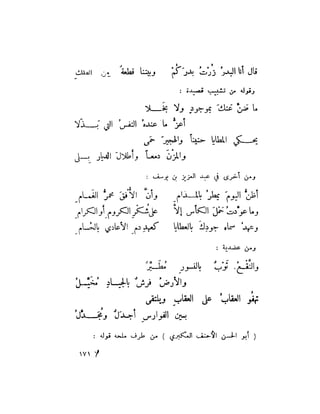 قال أنا البدرُ زُرْتُ بدرَكُمْ وبيتنا قطعةٌ من الفلكِ
وقوله من تشبيب قصيدة :
ما فتنٌ عنكَ بموجودٍ ولا بخَـــلا
أعزُّ ما عندهُ النفسُ التي بَـــذَلا
يحـــكي المطايا حنيناً والهجيرَ حمىً
والمزْنَ دمعـاً وأطلالَ الديار بـــلى
ومن أخرى في عبد العزيز بن يوسف :
أظنُّ اليومَ يمطرُ بالمــدامِ وأنَّ الأُفقَ محمرُّ الغمــامِ
وما عوَّدتَ حملَ الكأسِ إلاَّ على شُكرِ الكرومِ أو الكرامِ
وعهدُ سماءِ جودِكَ بالعطايا كعهدِ دمِ الأعادي بالحُســامِ
ومن عضدية :
والنَّقْــعُ ثوْبٌ بالنسورِ مُطيَّــرُ
والأرضُ فرشٌ بالجيــادِ مُخَيَّــلُ
تهفو العقابُ على العقابِ ويلتقي
بــين الفوارسِ أجــدلٌ ومُجَــــدَّلُ
( أبو الحسن الأحنف العكبري ) من طرف ملحه قوله :
١٧١